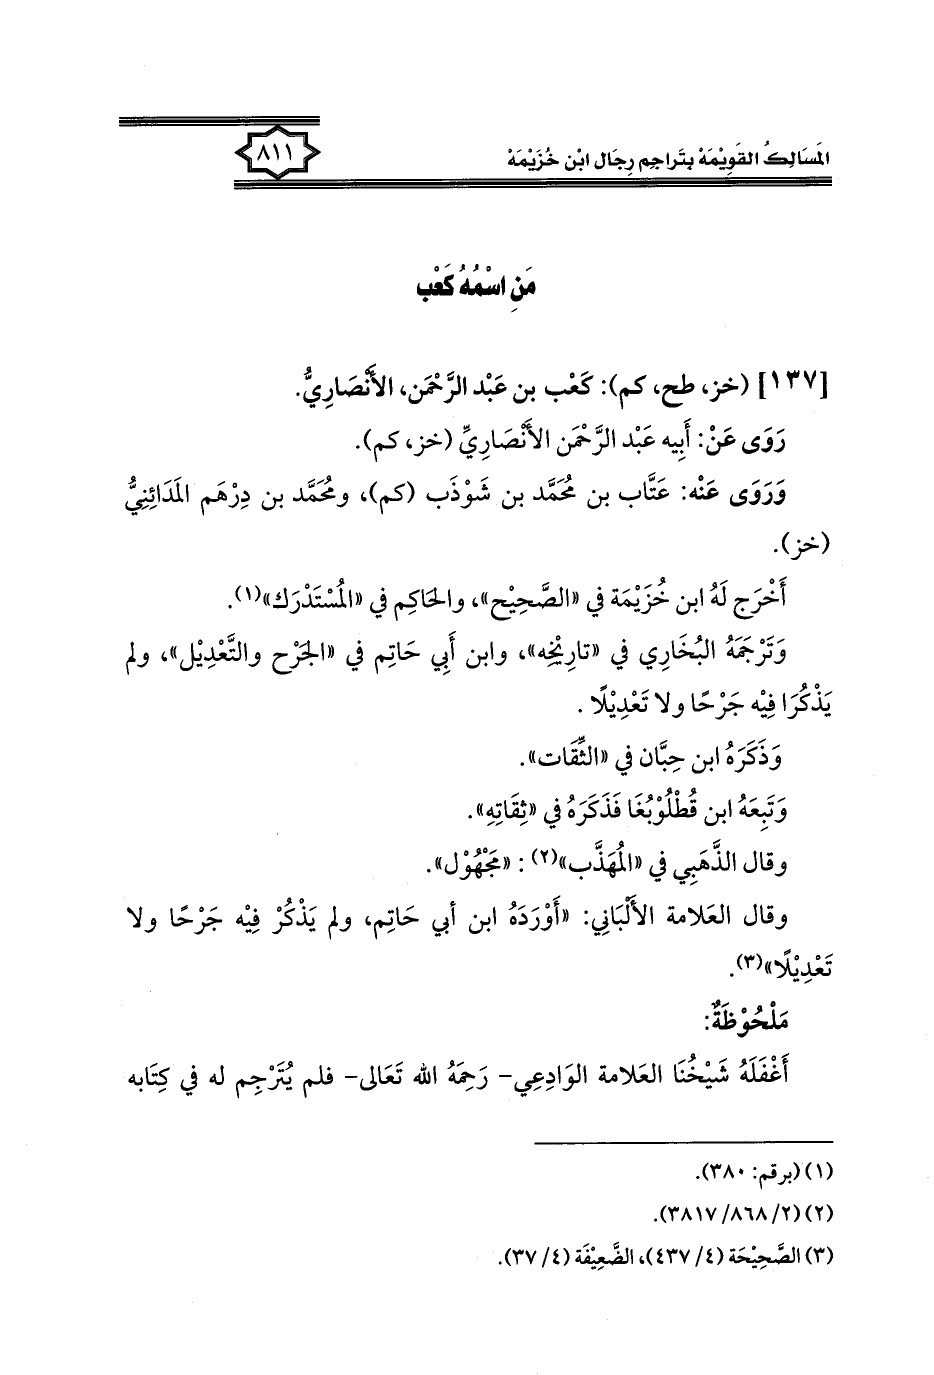 المَسَالِكُ القَوِيْمَة بِتَراجِم رِجَال ابْن خُزَيْمَة
٨١١
مَنِ اسْمُهُ كَعْب
[١٣٧] (خز، طح، كم): كَعْب بن عَبْد الرَّحْمَن، الأَنْصَارِيُّ.
رَوَى عَنْ: أَبِيه عَبْد الرَّحْمَن الأَنْصَارِيِّ (خز، كم).
وَرَوَى عَنْه: عَتَّاب بن مُحَمَّد بن شَوْذَب (كم)، ومُحَمَّد بن دِرْهَم المَدَائِنِيُّ
(خز).
أَخْرَج لَهُ ابن خُزَيْمَة في «الصَّحِيْح»، والحَاكِم في «المُسْتَدْرَك»(١).
وَتَرْجَمَهُ البُخَارِي في «تارِيْخِه»، وابن أَبِي حَاتِم في «الجَرْح والتَّعْدِيْل»، ولم
يَذْكُرَا فِيْه جَرْحًا ولا تَعْدِيْلًا .
وَذَكَرَهُ ابن حِبَّان في «الثِّقَات».
وَتَبِعَهُ ابن قُطْلُوْبُغَا فَذَكَرَهُ في «ثِقَاتِهِ».
وقال الذَّهَبِي في «المُهَذَّب»(٢) : «مَجْهُوْل».
وقال العَلامة الأَلْبَانِي: «أَوْرَدَهُ ابن أبي حَاتِم، ولم يَذْكُرْ فِيْه جَرْحًا ولا
تَعْدِيْلًا»(٣).
مَلْحُوْظَةٌ:
أَغْفَلَهُ شَيْخُنَا العَلامة الوَادِعِي- رَحِمَهُ الله تَعَالى- فلم يُتَرْجِم له في كِتَابه
(١) (برقم: ٣٨٠).
(٢) (٢/ ٨٦٨/ ٣٨١٧).
(٣) الصَّحِيْحَة (٤/ ٤٣٧)، الضَّعِيْفَة (٤/ ٣٧).